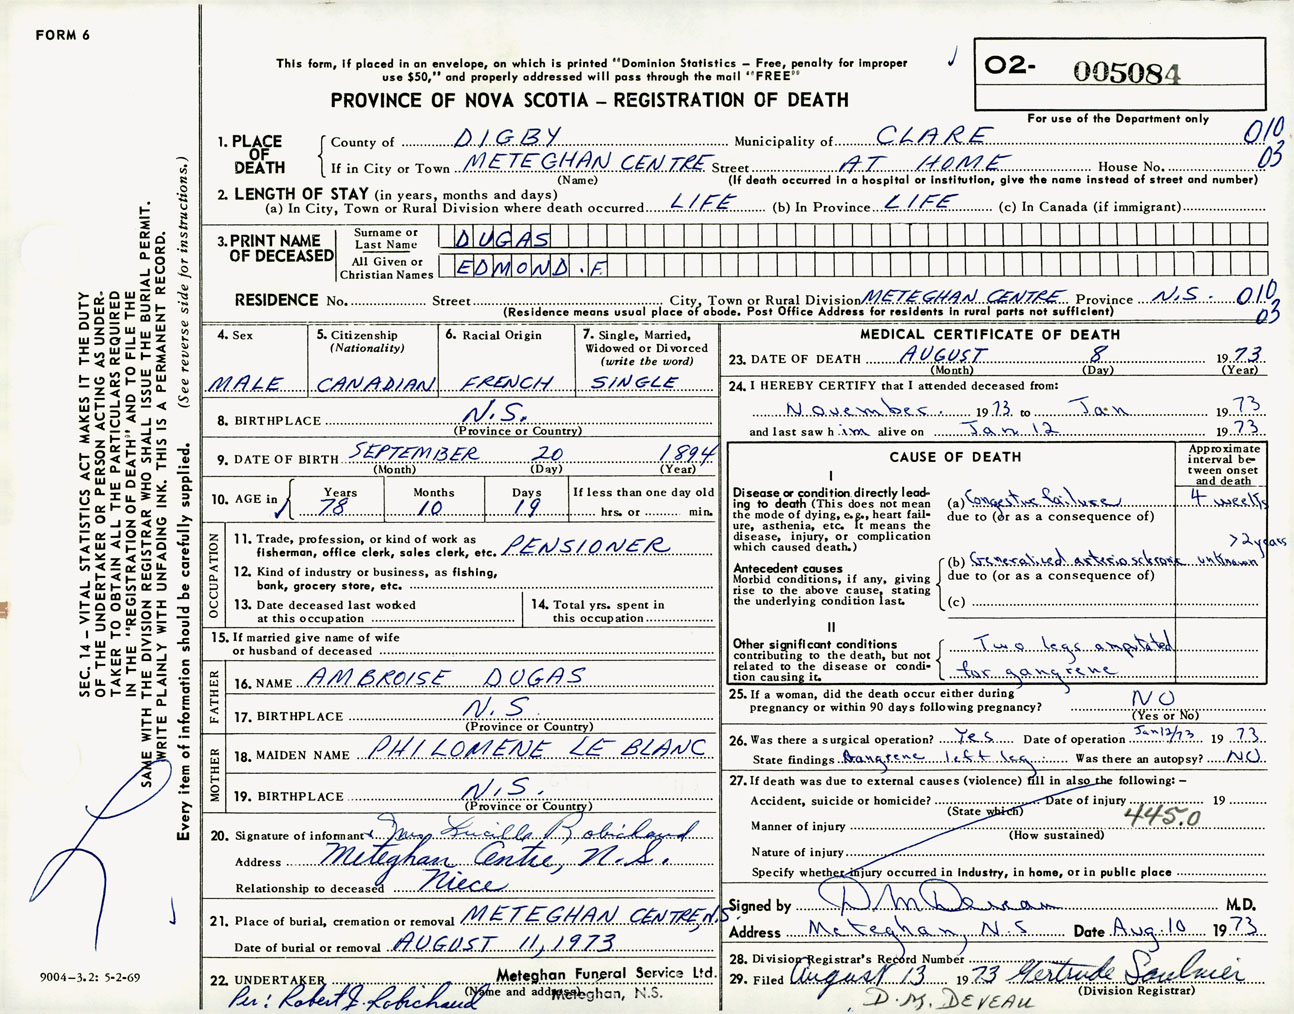 FORM 6
This form, if placed in an envelope, on which is printed "Dominion Statistics – Free, penalty for improper
use $50," and properly addressed will pass through the mail "FREE"
PROVINCE OF NOVA SCOTIA – REGISTRATION OF DEATH
02- 005084
For use of the Department only
1. PLACE OF DEATH
County of DIGBY Municipality of CLARE 010
If in City or Town METEGHAN CENTRE Street AT HOME House No. 03
(Name) (If death occurred in a hospital or institution, give the name instead of street and number)
2. LENGTH OF STAY (in years, months and days)
(a) In City, Town or Rural Division where death occurred LIFE (b) In Province LIFE (c) In Canada (if immigrant)
3. PRINT NAME OF DECEASED
Surname or Last Name DUGAS
All Given or Christian Names EDMOND. F.
RESIDENCE No. Street City, Town or Rural Division METEGHAN CENTRE Province N.S. 010
(Residence means usual place of abode. Post Office Address for residents in rural parts not sufficient) 03
4. Sex MALE
5. Citizenship (Nationality) CANADIAN
6. Racial Origin FRENCH
7. Single, Married, Widowed or Divorced (write the word) SINGLE
8. BIRTHPLACE N.S.
(Province or Country)
9. DATE OF BIRTH SEPTEMBER 20 1894
(Month) (Day) (Year)
10. AGE in Years 78 Months 10 Days 19 If less than one day old hrs. or min.
OCCUPATION
11. Trade, profession, or kind of work as
fisherman, office clerk, sales clerk, etc. PENSIONER
12. Kind of industry or business, as fishing,
bank, grocery store, etc.
13. Date deceased last worked
at this occupation
14. Total yrs. spent in
this occupation
15. If married give name of wife
or husband of deceased
FATHER
16. NAME AMBROISE DUGAS
17. BIRTHPLACE N.S.
(Province or Country)
MOTHER
18. MAIDEN NAME PHILOMENE LE BLANC
19. BIRTHPLACE N.S.
(Province or Country)
20. Signature of informant x Miss Lucille Robichaud
Address Meteghan Centre, N.S.
Relationship to deceased Niece
21. Place of burial, cremation or removal METEGHAN CENTRE, N.S.
Date of burial or removal AUGUST 11, 1973
22. UNDERTAKER Meteghan Funeral Service Ltd.
(Name and address) Meteghan, N.S.
Per: Robert J. Robichaud
MEDICAL CERTIFICATE OF DEATH
23. DATE OF DEATH AUGUST 8 1973
(Month) (Day) (Year)
24. I HEREBY CERTIFY that I attended deceased from:
November 1973 to Jan 1973
and last saw him alive on Jan 12 1973
CAUSE OF DEATH
Approximate interval between onset and death
I
Disease or condition directly lead-
ing to death (This does not mean
the mode of dying, e.g., heart fail-
ure, asthenia, etc. It means the
disease, injury, or complication
which caused death.)
(a) Congestive failure 4 weeks
due to (or as a consequence of)
Antecedent causes
Morbid conditions, if any, giving
rise to the above cause, stating
the underlying condition last.
>2 years
(b) Generalized arteriosclerosis unknown
due to (or as a consequence of)
(c)
II
Other significant conditions
contributing to the death, but not
related to the disease or condi-
tion causing it.
Two legs amputated
for gangrene
25. If a woman, did the death occur either during
pregnancy or within 90 days following pregnancy? NO
(Yes or No)
26. Was there a surgical operation? Yes Date of operation Jan 12/73 1973
State findings Gangrene left leg Was there an autopsy? NO
27. If death was due to external causes (violence) fill in also the following: –
Accident, suicide or homicide? Date of injury 19
(State which)
Manner of injury 445.0
(How sustained)
Nature of injury
Specify whether injury occurred in Industry, in home, or in public place
Signed by D M Deveau M.D.
Address Meteghan, N.S Date Aug. 10 1973
28. Division Registrar's Record Number
29. Filed August 13 1973 Gertrude Saulnier
(Division Registrar)
D. M. DEVEAU
SEC. 14 – VITAL STATISTICS ACT MAKES IT THE DUTY
OF THE UNDERTAKER OR PERSON ACTING AS UNDER-
TAKER TO OBTAIN ALL THE PARTICULARS REQUIRED
IN THE "REGISTRATION OF DEATH" AND TO FILE THE
SAME WITH THE DIVISION REGISTRAR WHO SHALL ISSUE THE BURIAL PERMIT.
WRITE PLAINLY WITH UNFADING INK. THIS IS A PERMANENT RECORD.
Every item of information should be carefully supplied. (See reverse side for instructions.)
9004-3.2: 5-2-69